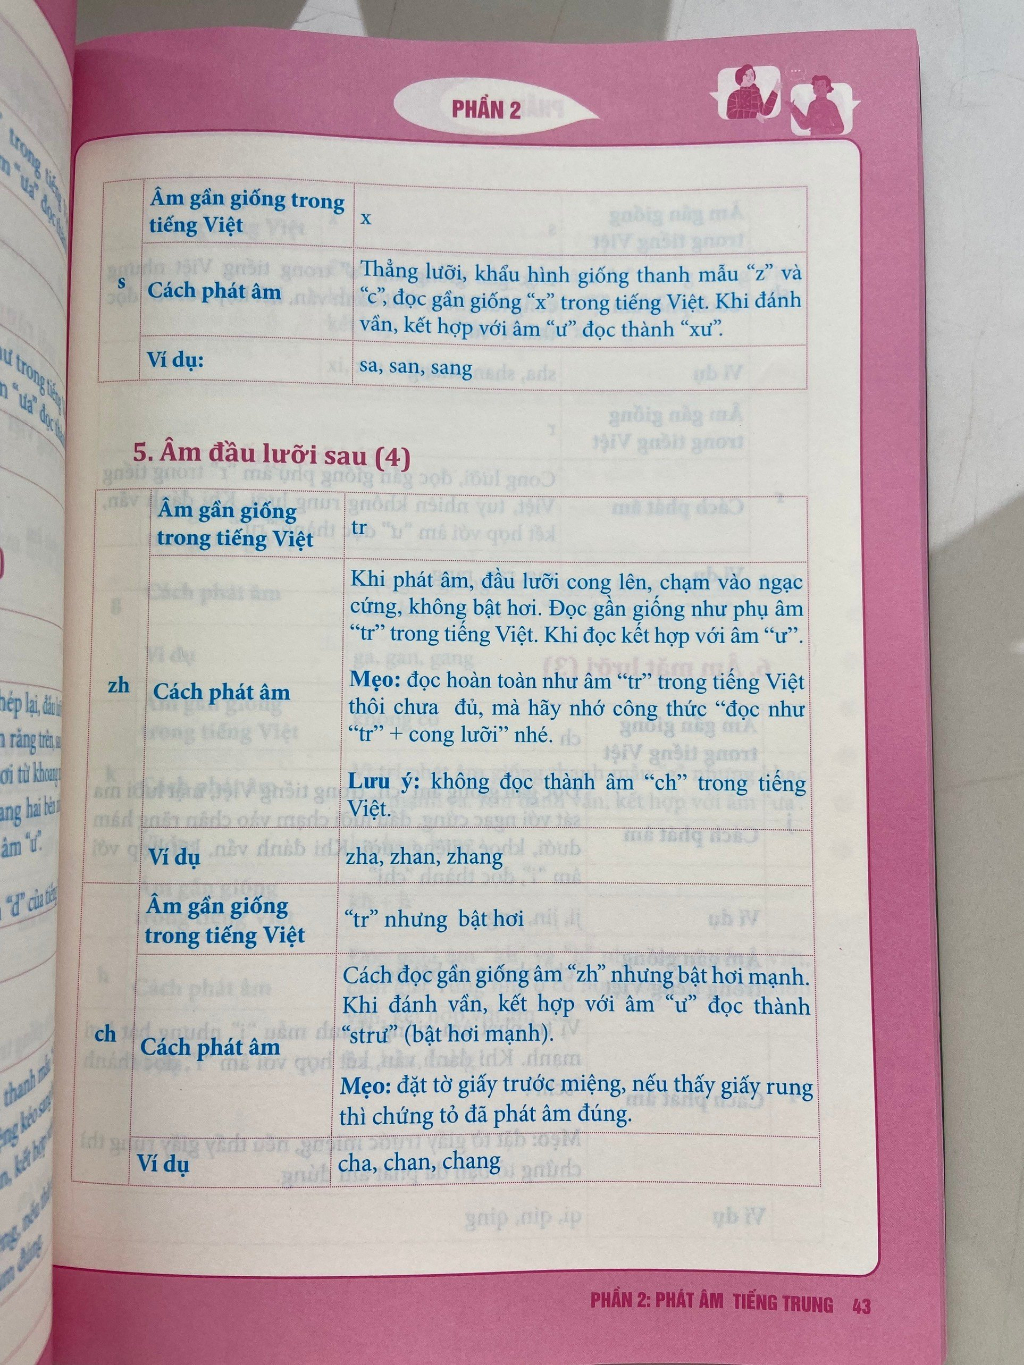 PHẦN 2
s
Âm gần giống trong
tiếng Việt
x
Cách phát âm
Thẳng lưỡi, khẩu hình giống thanh mẫu “z” và
“c”, đọc gần giống “x” trong tiếng Việt. Khi đánh
vần, kết hợp với âm “ư” đọc thành “xư”.
Ví dụ:
sa, san, sang
5. Âm đầu lưỡi sau (4)
zh
Âm gần giống
trong tiếng Việt
tr
Cách phát âm
Khi phát âm, đầu lưỡi cong lên, chạm vào ngạc
cứng, không bật hơi. Đọc gần giống như phụ âm
“tr” trong tiếng Việt. Khi đọc kết hợp với âm “ư”.
Mẹo: đọc hoàn toàn như âm “tr” trong tiếng Việt
thôi chưa đủ, mà hãy nhớ công thức “đọc như
“tr” + cong lưỡi” nhé.
Lưu ý: không đọc thành âm “ch” trong tiếng
Việt.
Ví dụ
zha, zhan, zhang
ch
Âm gần giống
trong tiếng Việt
“tr” nhưng bật hơi
Cách phát âm
Cách đọc gần giống âm “zh” nhưng bật hơi mạnh.
Khi đánh vần, kết hợp với âm “ư” đọc thành
“strư” (bật hơi mạnh).
Mẹo: đặt tờ giấy trước miệng, nếu thấy giấy rung
thì chứng tỏ đã phát âm đúng.
Ví dụ
cha, chan, chang
PHẦN 2: PHÁT ÂM TIẾNG TRUNG 43